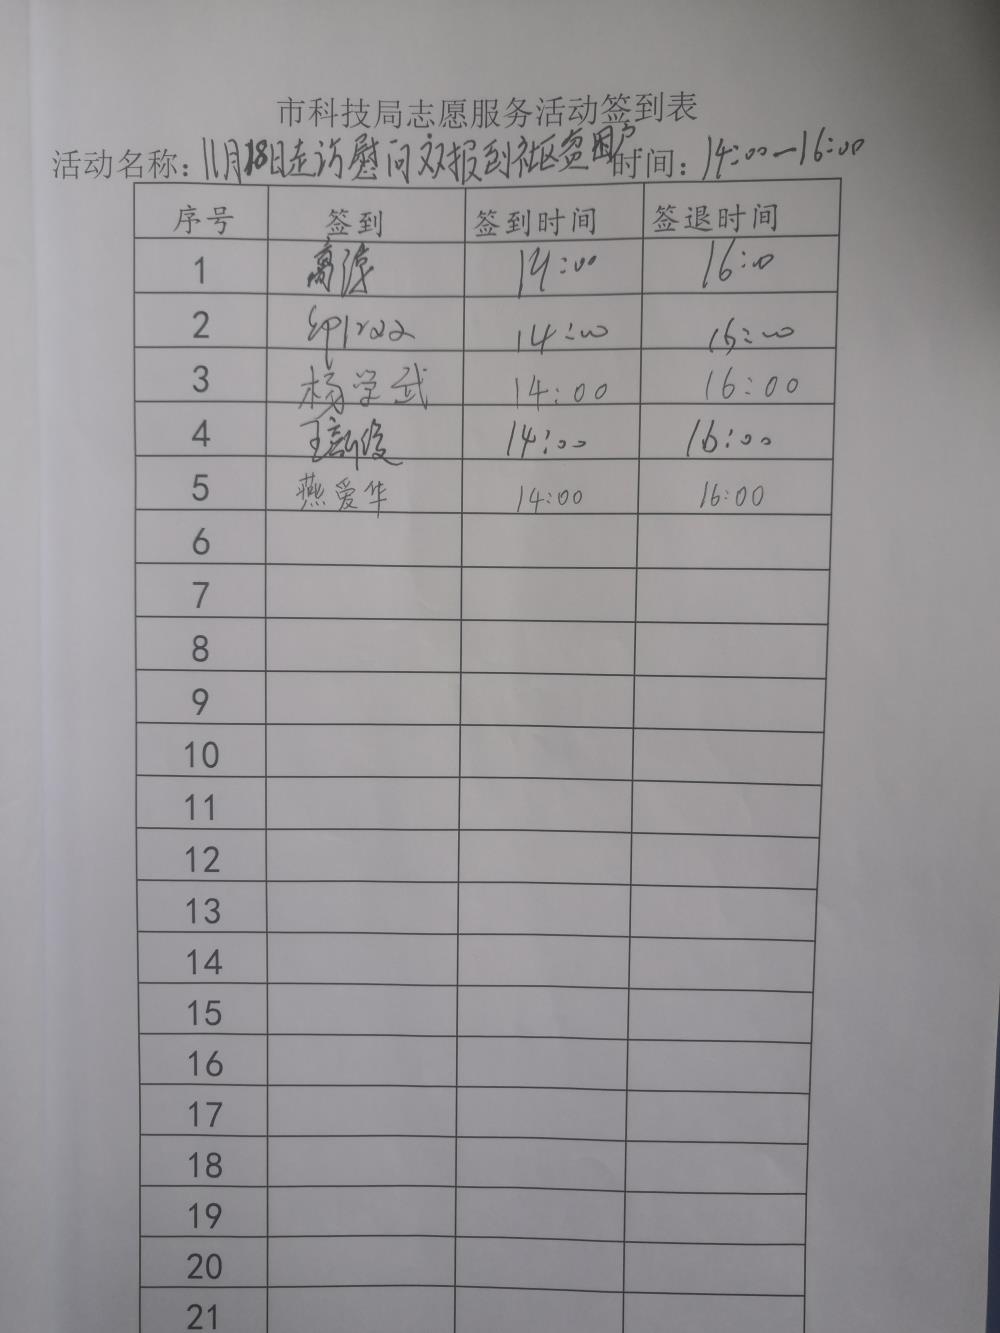 市科技局志愿服务活动签到表
活动名称：11月18日走访慰问双报到社区贫困户 时间：14:00—16:00
序号 签到 签到时间 签退时间
1 14:00 16:00
2 14:00 16:00
3 杨学武 14:00 16:00
4 14:00 16:00
5 燕爱华 14:00 16:00
6
7
8
9
10
11
12
13
14
15
16
17
18
19
20
21